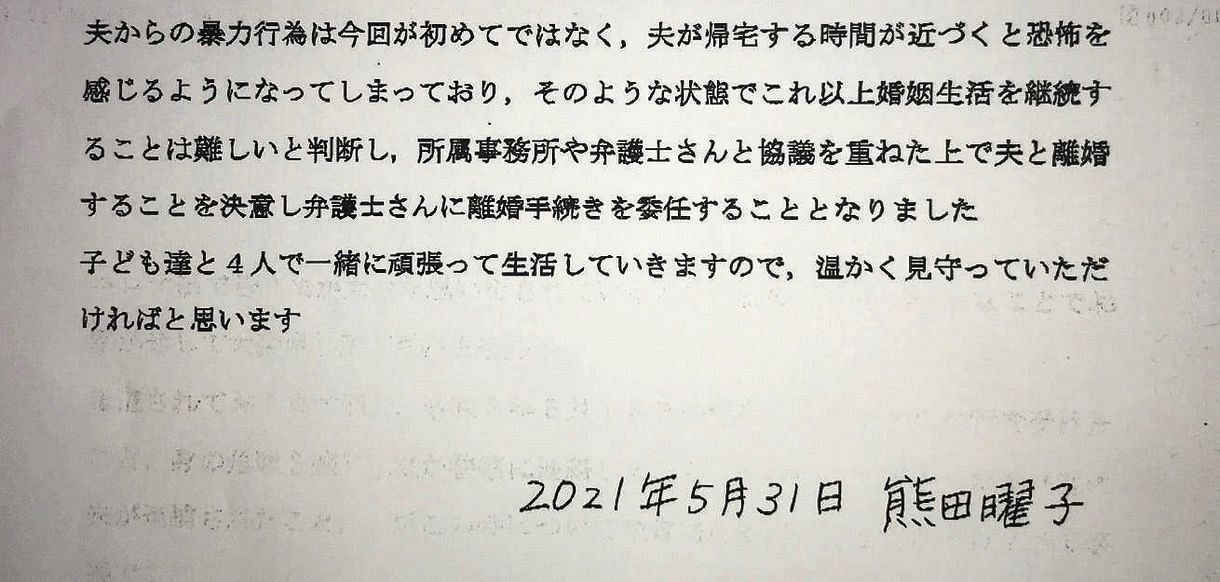 夫からの暴力行為は今回が初めてではなく，夫が帰宅する時間が近づくと恐怖を
感じるようになってしまっており，そのような状態でこれ以上婚姻生活を継続す
ることは難しいと判断し，所属事務所や弁護士さんと協議を重ねた上で夫と離婚
することを決意し弁護士さんに離婚手続きを委任することとなりました
子ども達と４人で一緒に頑張って生活していきますので，温かく見守っていただ
ければと思います
2021年5月31日 熊田曜子